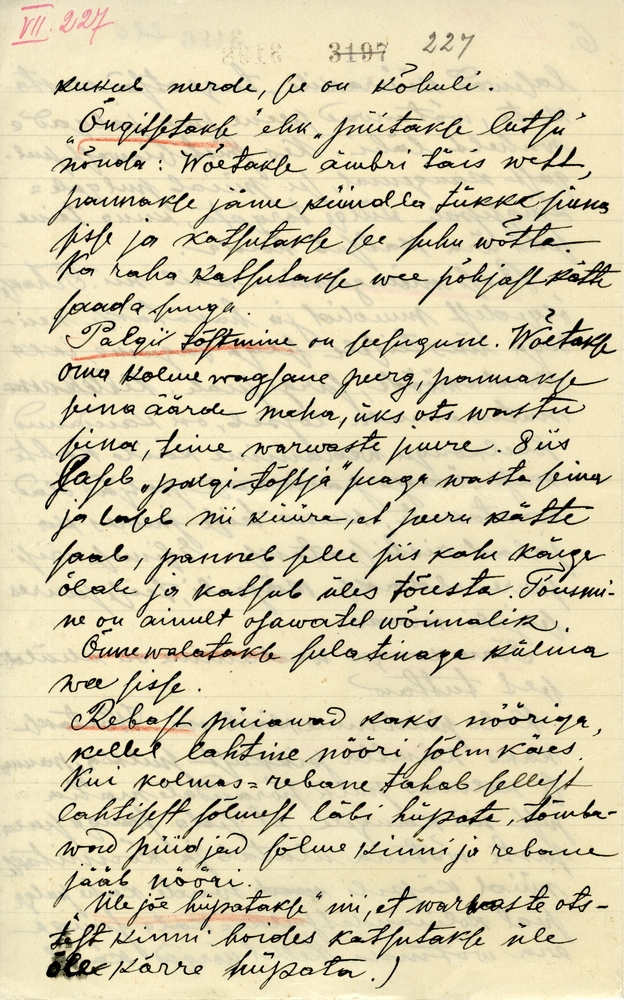 VII. 227
3197 227
kukub merde, se on kõhuli.
"Õngitsetakse" ehk "püitakse lutsu"
nõnda: Wõetakse ämbri täis wett,
pannakse jäme küündla tükke sinna
sisse ja katsutakse se suhu wõtta.
Ka raha katsutakse wee põhjast kätte
saada suuga.
Palgi tõstmine on seesugune. Wõetakse
oma kolme wagsane peerg, pannakse
seina äärde maha, üks ots wastu
seina, teine warwaste juure. Siis
laseb "palgi tõstja" peaga wasta seina
ja laseb nii küüra, et peeru kätte
saab, panneb selle siis kahe käega
õlale ja katsub üles tõusta. Tõusmi-
ne on ainult osawatel wõimalik.
Õnne walatakse sulatinaga külma
wee sisse.
Rebast püiawad kaks nööriga,
kellel lahtine nööri sõlm käes.
Kui kolmas-rebane tahab sellest
lahtisest sõlmest läbi hüpata, tõmba-
wad püidjad sõlme kinni ja rebane
jääb nööri.
"Üle jõe hüpatakse" nii, et warwaste ots-
test kinni hoides katsutakse üle
õle kõrre hüpata.)